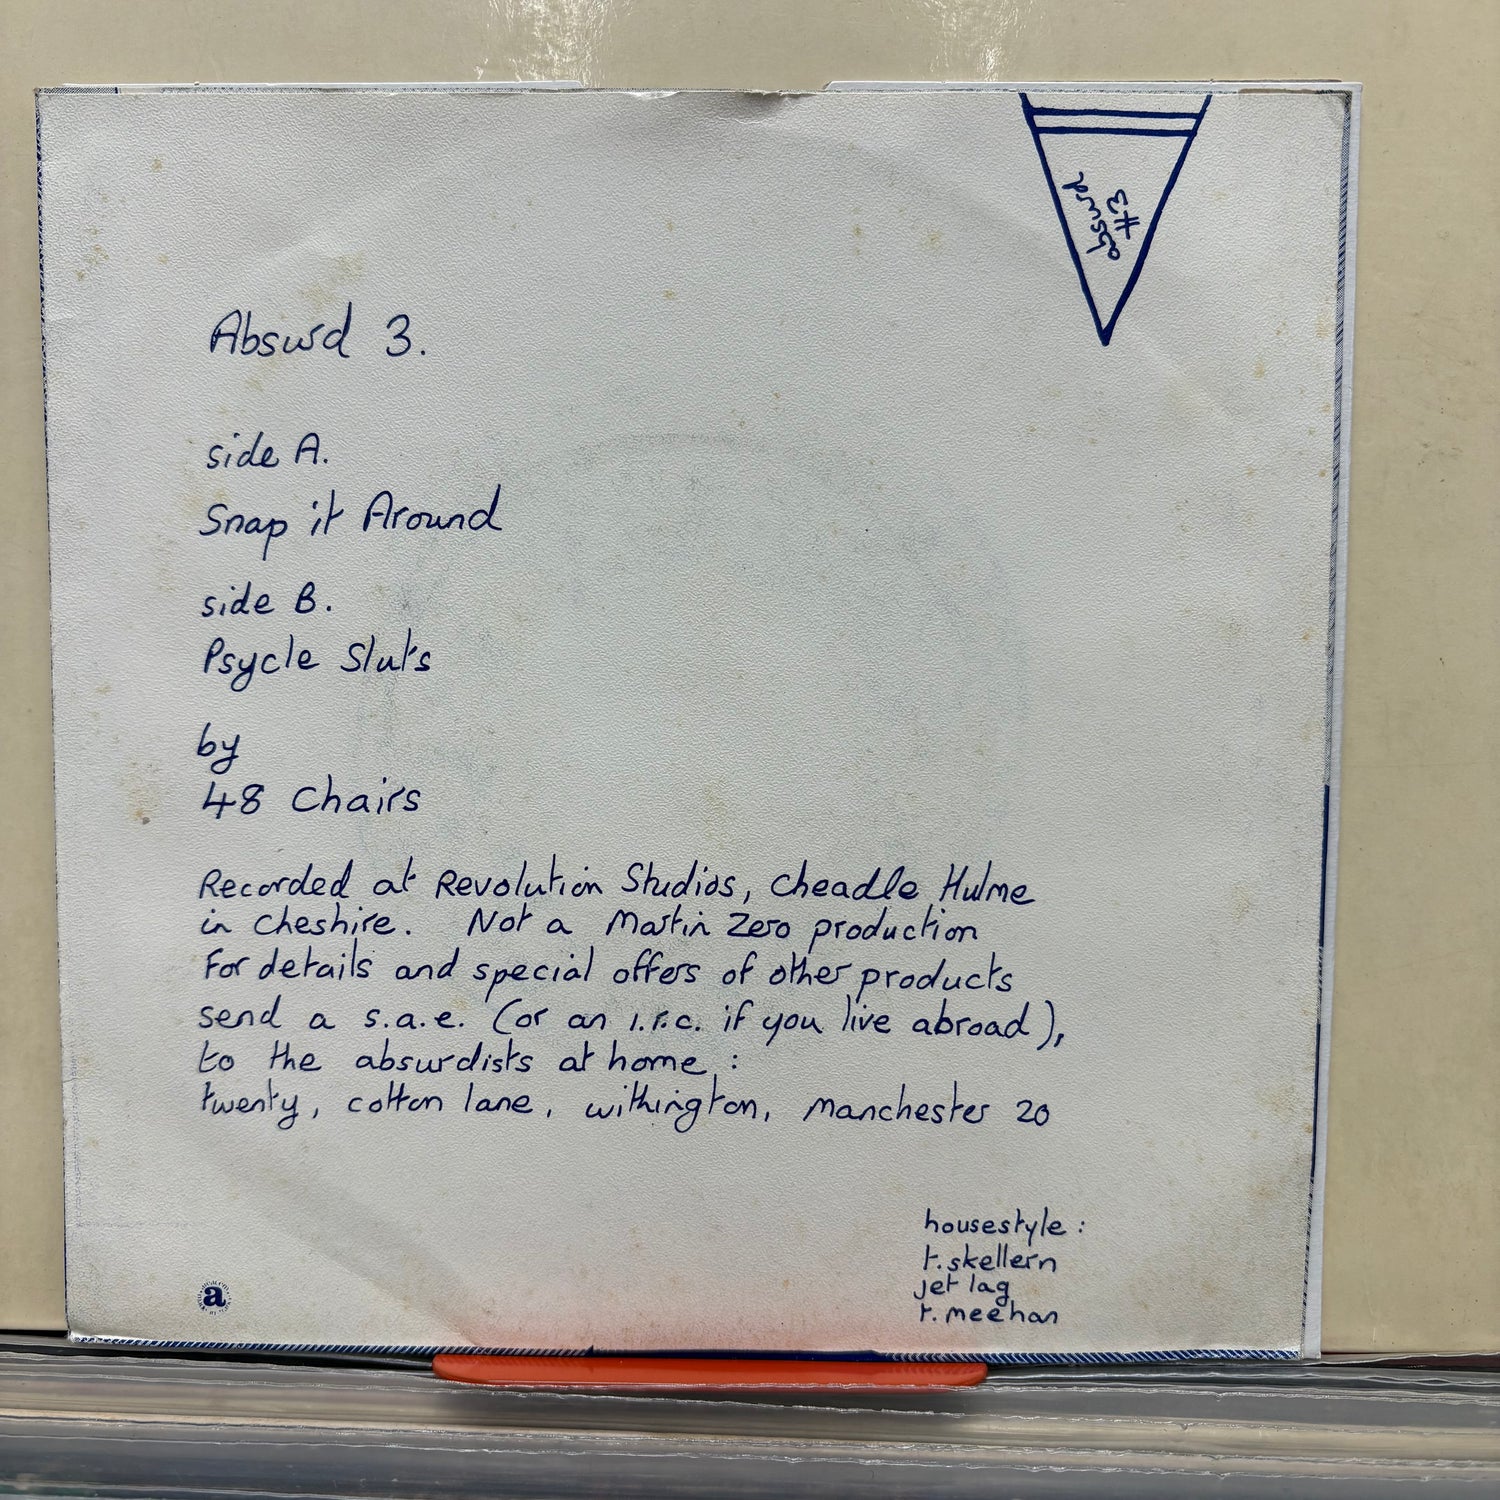 absurd
#3
Absurd 3.
side A.
Snap it Around
side B.
Psycle Sluts
by
48 Chairs
Recorded at Revolution Studios, Cheadle Hulme
in Cheshire. Not a Martin Zero production
For details and special offers of other products
send a s.a.e. (or an i.r.c. if you live abroad),
to the absurdists at home :
twenty, cotton lane, withington, manchester 20
housestyle :
t. skellern
jet lag
t. meehan
a